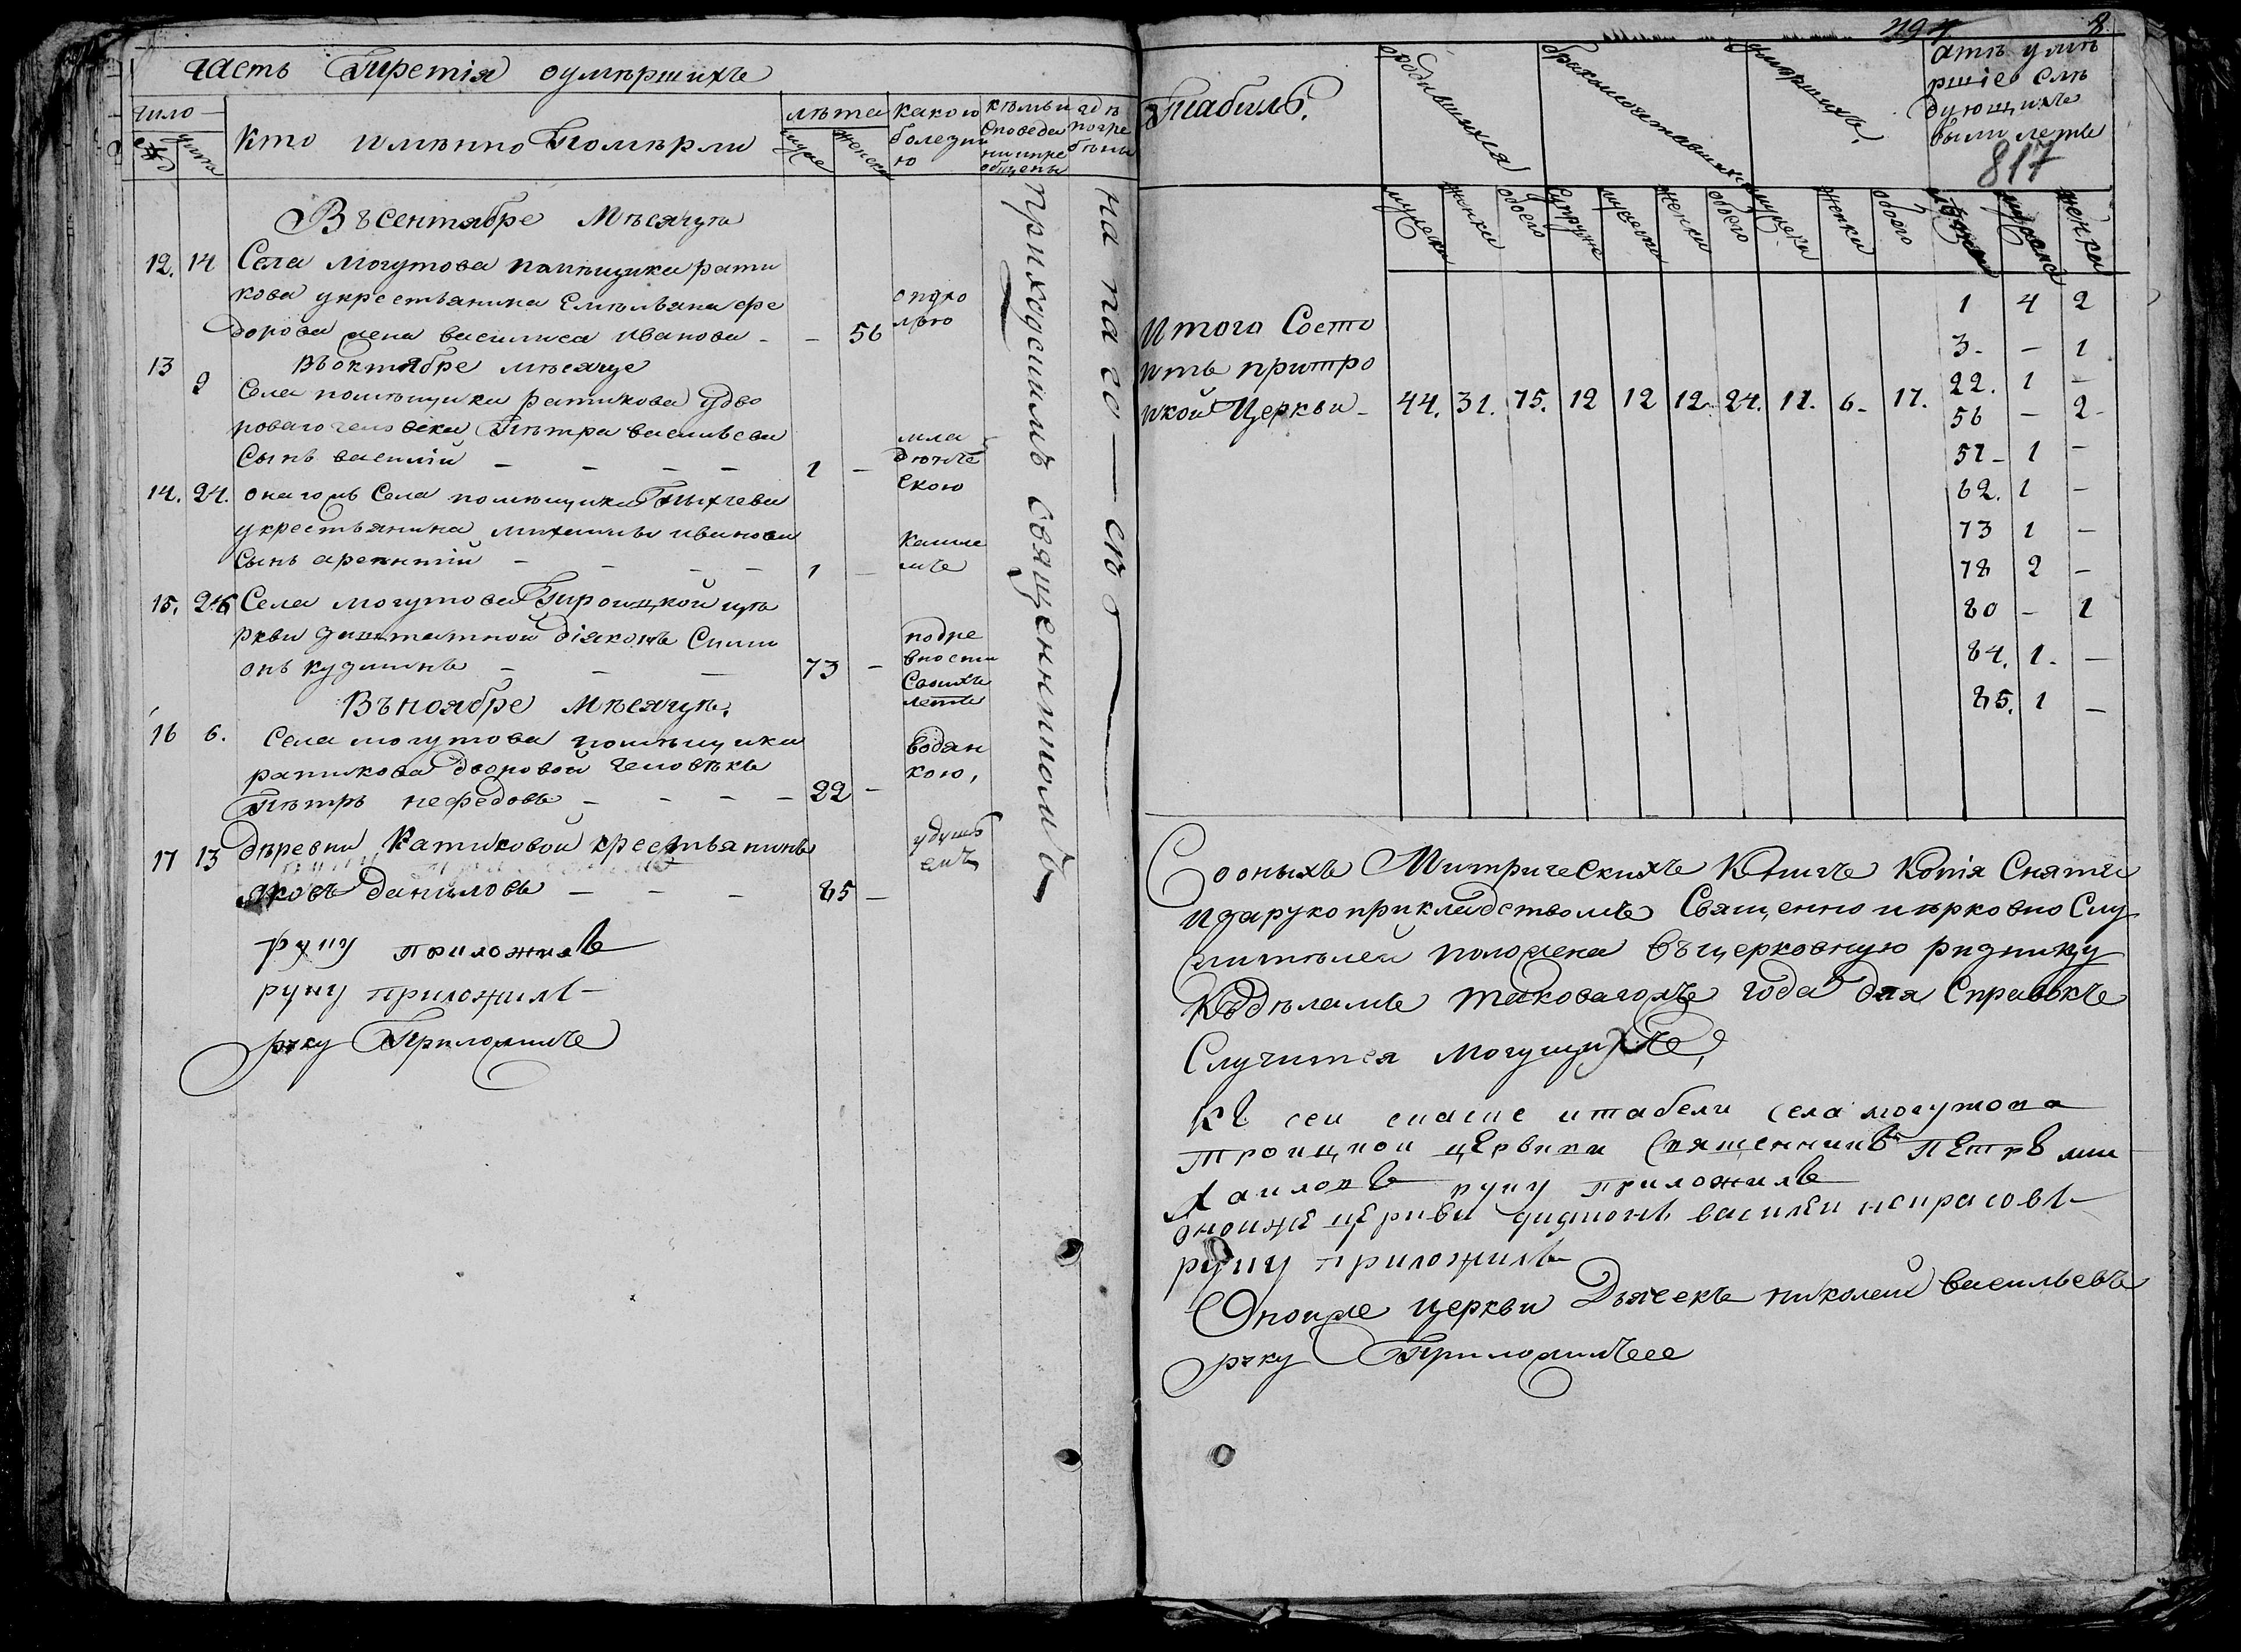 часть Третія оумѣршихъ
число
кто имѣнно Померли
лѣта
муже
женска
какою
болезни
ю
кѣмъ и
споведа
ни и прі
общены
гдѣ
погре
бены
Въ сентябре мѣсяцѣ
12. 14 Села могутова помещика рати
кова у крестьянина Емельяна фе
дорова жена василиса иванова - - 56
опухо
лью
13 въ октябре месяце
2 Села помещика ратикова у дво
роваго человека Петра васильева
Сынъ василій - - - - 1 -
мла
денче
скою
14. 24. онагожъ Села помещика
у крестьянина михаилы иванова
Сынъ - - - - 1 -
кашле
мъ
15. 26 Села могутова Троицкой це
ркви заштатной діяконъ Сими
онъ - - - 73 -
по дре
вности
Своихъ
летъ
Въ ноябре Мѣсяцѣ.
16 6. Села могутова помещика
ратикова дворовой человѣкъ
Пѣтръ нефедовъ - - - - 22 -
водян
кою,
17 13 дѣревни Катиковой крестьянинъ
яковъ даниловъ - - - 85 -
удушь
емъ
руку приложилъ
руку приложилъ
руку Приложилъ
приходскимъ священникомъ
8
Табиль.
родившихся
бракомсочетавшихся
умершихъ.
отъ умѣ
ршіе слѣ
дующихъ
были летъ
817
мужеска
женска
обоего
супруж
мужеска
женска
обоего
мужеска
женска
обоего
мужеска
женска
Итого Состо
итъ при тро
ицкой Церкви - 44. 31. 75. 12 12 12. 24. 11. 6. 17.
1 4 2
3. - 1
22. 1 -
56 - 2
57 - 1 -
62. 1 -
73 1 -
78 2 -
80 - 1
84. 1. -
85. 1 -
Со оныхъ Митрическихъ Книгъ Копія Снята
и за рукоприкладствомъ Священно и церковно Слу
жителей положена въ церковную ризницу
Къ дѣламъ таковагожъ года для Справокъ
Случится могущихъ,
къ сеи and табели села могутова
троицкои церквии Священникъ петръ ми
хаиловъ руку приложилъ
оноиже церкви диаконъ василеи некрасовъ
руку приложилъ
Оноиже церкви Дьячекъ николаи васильевъ
руку Приложилъ